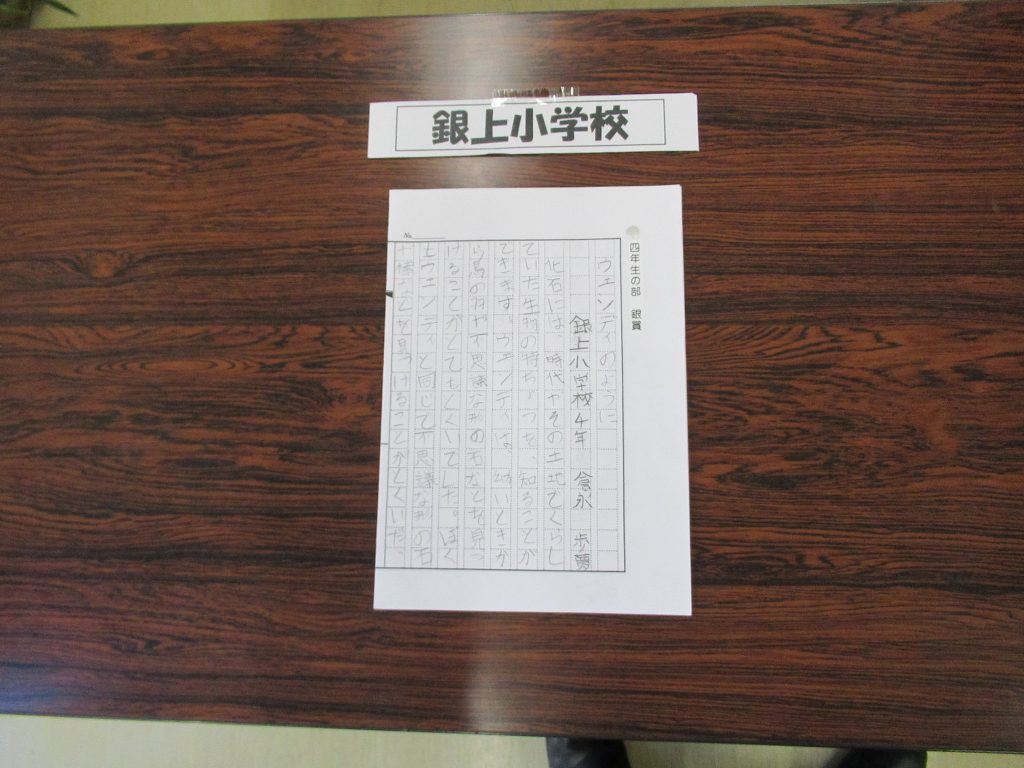 銀上小学校
四年生の部 銀賞
ウェンディのように
銀上小学校4年 倉永 歩夢
化石には、時代やその土地でくらし
ていた生物の特ちょうを、知ることが
できます。ウェンディは、幼いときか
ら鳥の羽や不思議な形の石などを見つ
けることがとてもとくいでした。ぼく
もウェンディと同じで不思議な形の石
や
などを見つけることがとくいだ。
No.